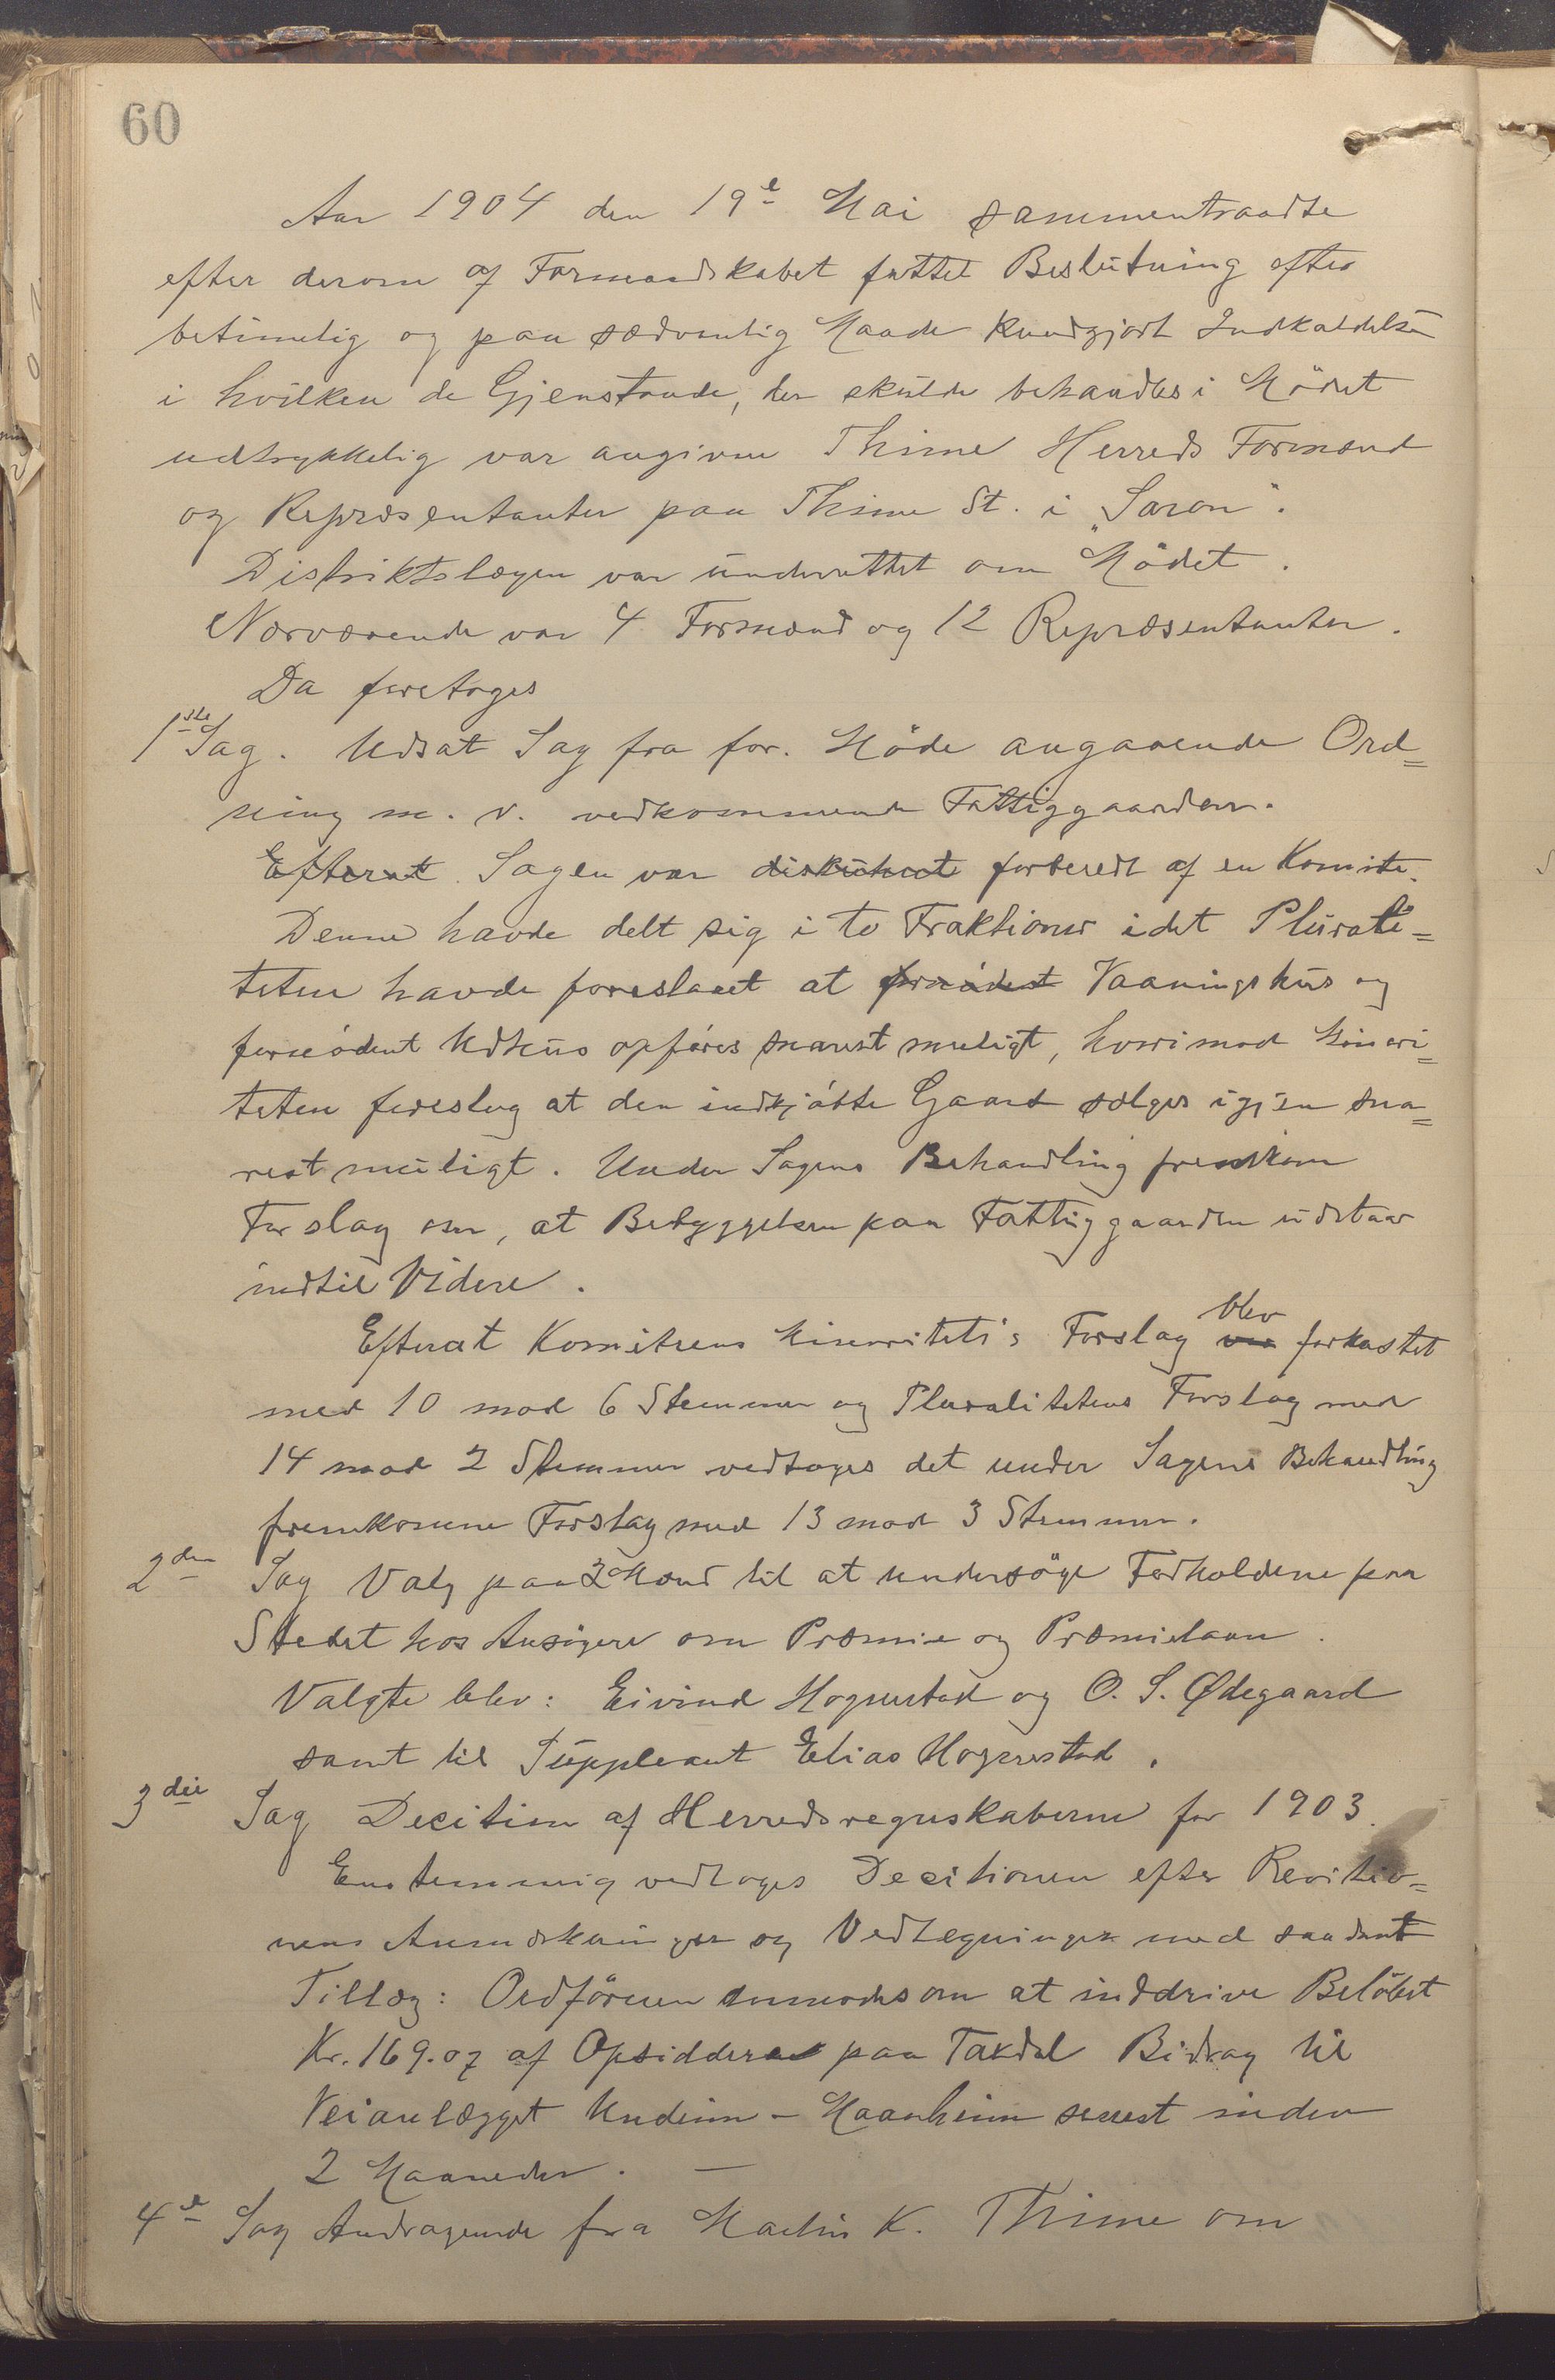 60
Aar 1904 den 19e Mai sammentraadte
efter derom af Formandskabet fattet Beslutning efter
betimelig og paa sædvanlig Maade kundgjort Indkaldelse
i hvilken de Gjenstande, der skulde behandles i Mödet
udtrykkelig var angivne Thime Herreds Formænd
og Repræsentanter paa Thime St. i „Saron“.
Distriktslægen var underrettet om Mödet.
Nærværende var 4 Formænd og 12 Repræsentanter.
Da foretoges
1ste Sag. Udsat Sag fra for. Möde angaaende Ord=
ning m. v. vedkommende Fattiggaarden.
Efterat Sagen var diskuteret forberedt af en Komite.
Denne havde delt sig i to Fraktioner idet Plurali=
teten havde foreslaaet at Vaaningshus og
fornödent Udhus opföres snarest muligt, hvorimod Minori=
teten foreslog at den indkjöbte Gaard sælges igjen sna=
rest muligt. Under Sagens Behandling fremkom
Forslag om, at Bebyggelsen paa Fattiggaarden udstaar
indtil Videre.
Efterat Komiteens Minoritets Forslag var blev forkastet
med 10 mod 6 Stemmer og Pluralitetens Forslag med
14 mod 2 Stemmer vedtoges det under Sagens Behandling
fremkomne Forslag med 13 mod 3 Stemmer.
2den Sag Valg paa 2 Mænd til at undersöge Forholdene paa
Stedet hos Ansögere om Præmie og Præmielaan.
Valgte blev: Eivind Hognestad og O. S. Ødegaard
samt til Suppleant Elias Hognestad.
3die Sag Decition af Herredsregnskaberne for 1903.
Enstemmig vedtoges Decitionen efter Revitio=
nens Anmærkninger og Vedtegninger med saadant
Tillæg: Ordföreren anmodes om at inddrive Belöbet
Kr. 169.07 af Opsiddere paa Taxdal Bidrag til
Veianlægget Undeim - Haanheim senest inden
2 Maaneder. —
4e Sag Andragende fra Martin K. Thime om